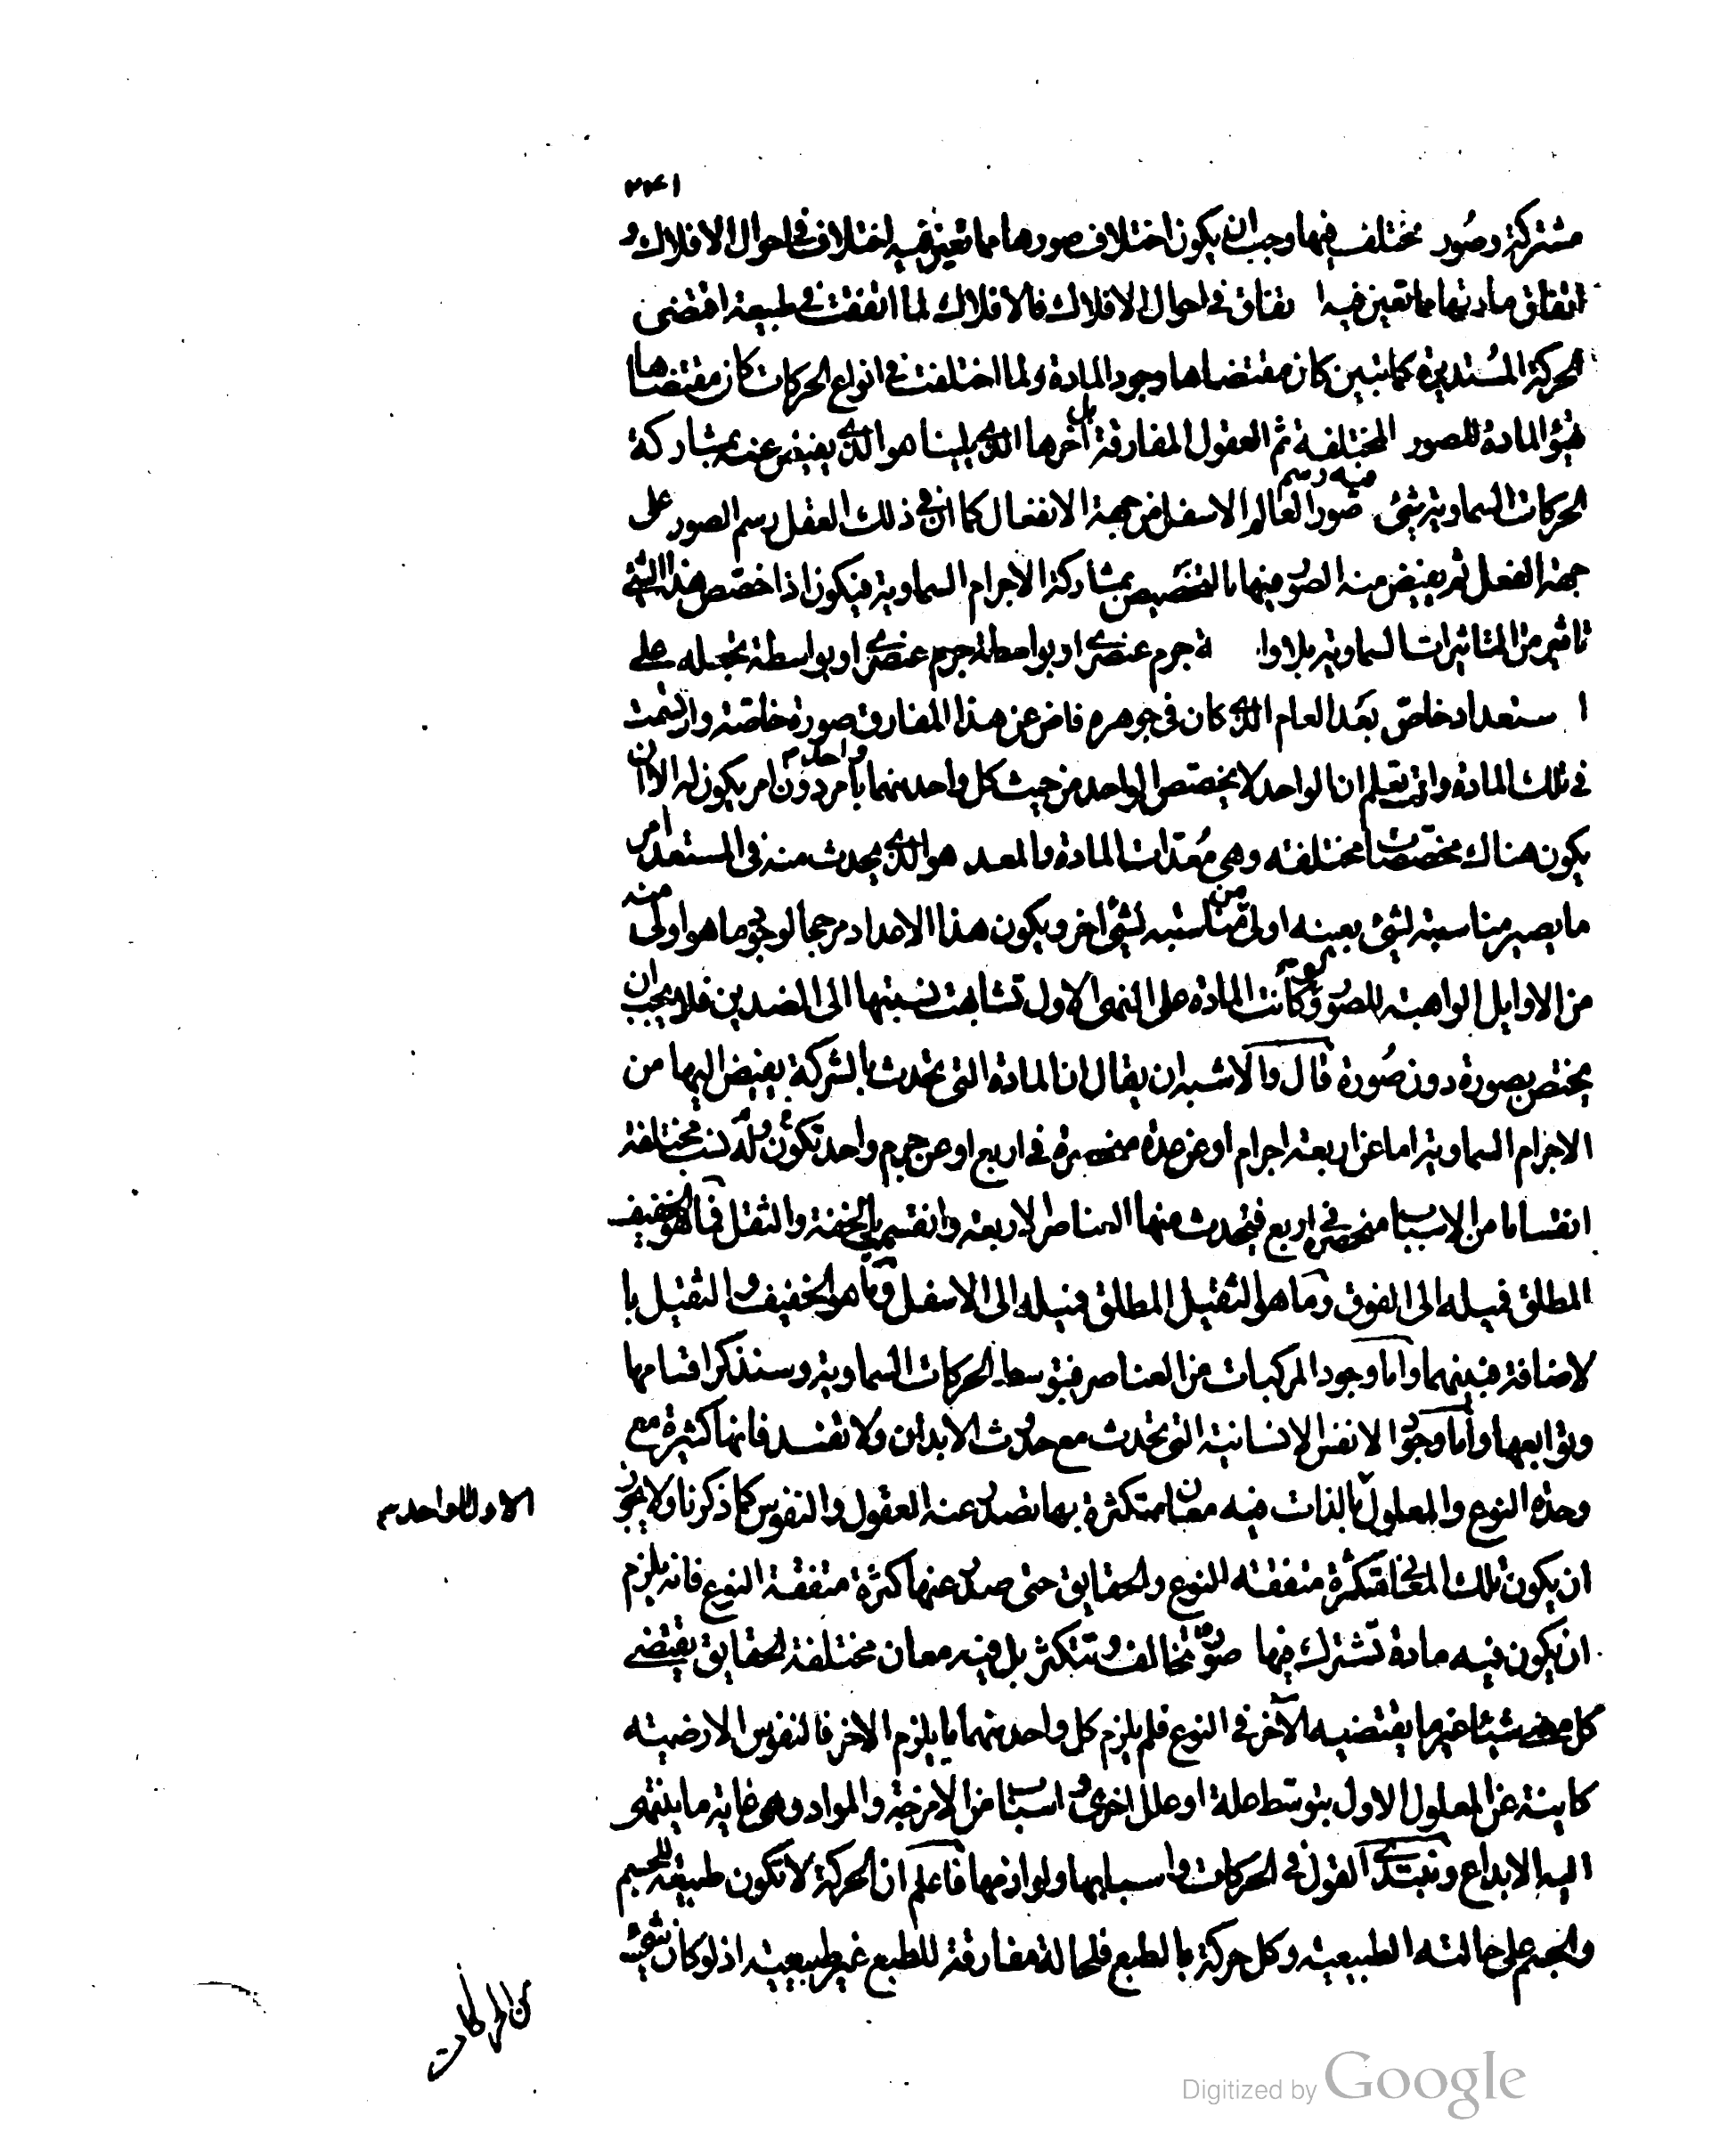 ٢٤١
مشتركة وصُور مختلف فيها وجب ان يكون اختلاف صورها مما تعين فيه اختلاف في احوال الافلاك و
اتفاق مادتها مما تعين فيه ا تفاق في احوال الافلاك فالافلاك لما اتفقت في طبيعة اقتضى
الحركة المُستديرة كما تبين كان مقتضاها وجود المادة ولما اختلفت في انواع الحركات كان مقتضاها
تهيؤ المادة للصور المختلفة ثم العقول المفارقة بل اخرها الذي يلينا هو الذي يفيض عنه بمشاركة
الحركات السماوية شئ فيه رسم صور العالم الاسفل من جهة الانفعال كما ان في ذلك العقل رسم الصور على
جهة الفعل ثم يفيض منه الصور فيها بالتخصيص بمشاركة الاجرام السماوية فيكون اذا خصّص هذا الشئ
تاثير من التاثيرات السماوية بلا وا ة جرم عنصري او بواسطة جرم عنصري او بواسطة تجعله على
ا ستعداد خاصّ بعد العام الذي كان في جوهره فاض عن هذا المفارق صورة خاصة وارتسمت
في تلك المادة وانت تعلم ان الواحد لا يخصّص الواحد من حيث كل واحد منهما واحد بامر دون امر يكون له الا ان
يكون هناك مخصّصات مختلفه وهي مُعدّات المادة والمعد هو الذي يحدث منه في المستعد امر
ما يصير مناسبته لشئ بعينه اولى من مناسبته لشئ اخر ويكون هذا الاعداد مرجحا لوجود ما هو اولى منه
من الاوايل الواهبة للصور ولو كانت المادة على التهيئ الاول تشابهت نسبتها الى الضدين فلا يجب ان
يختص بصورة دون صُورة قال والاشبه ان يقال ان المادة التي تحدث بالشركة يفيض اليها من
الاجرام السماوية اما عن اربعة اجرام او عن عدة منحصرة في اربع او عن جرم واحد تكون له نسب مختلفة
انقساما من الاسباب منحصرة في اربع فيحدث منها العناصر الاربعة وانقسم بالخفة والثقل فما هو الخفيف
المطلق فميله الى الفوق وما هو الثقيل المطلق فميله الى الاسفل وما هو الخفيف والثقيل با
لاضافة فبينهما واما وجود المركبات من العناصر فبتوسط الحركات السماوية وسنذكر اقسامها
وتوابعها واما وجود الانفس الانسانية التي تحدث مع حدوث الابدان ولا تفسد فانها كثيرة مع
وحدة النوع والمعلول بالذات فيه معان متكثرة بها تصدر عنه العقول والنفوس كما ذكرنا ولا يجوز
الاول الواحد
ان يكون تلك المعاني متكثرة متفقه النوع والحقايق حتى صدر عنها كثرة متفقة النوع فانه يلزم
ان يكون فيه مادة تشترك فيها صور تتخالف وتتكثر بل فيه معان مختلفة الحقايق يقتضي
كل معنى شيئا غير ما يقتضيه الآخر في النوع فلم يلزم كل واحد منهما ما يلزم الاخر فالنفوس الارضيته
كاينة عن المعلول الاول بتوسّط علة او علل اخرى و اسباب من الامزجة والمواد وهي غاية ما ينتهي
اليه الابداع ونبتدئ القول في الحركات واسبابها ولوازمها فاعلم ان الحركة لا تكون طبيعته للجسم
والجسم على حالته الطبيعيته وكل حركة بالطبع فلحالة مفارقة للطبع غير طبيعيته اذ لو كان شئ
من الحركات
Digitized by Google